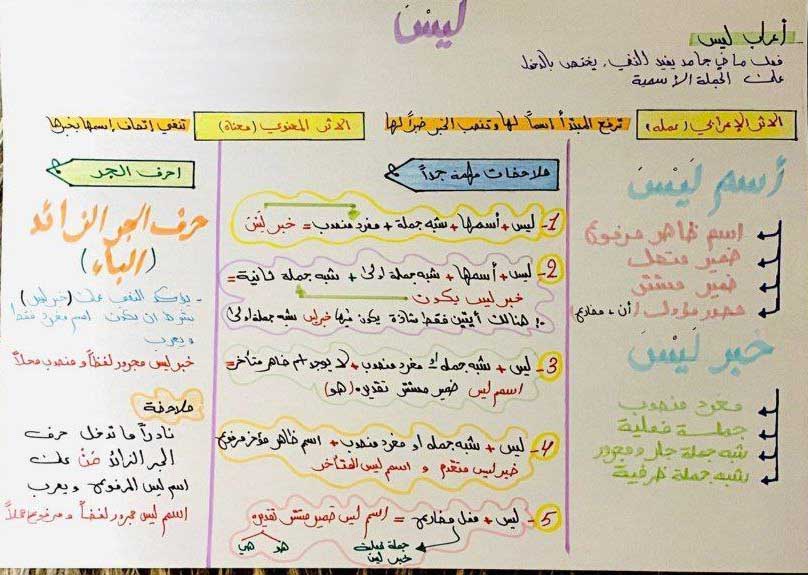 ليس
- أعراب ليس
فعل ماضي جامد يفيد النفي، يختص بالدخول
على الجملة الأسمية
الاثر الإعرابي (عمله)
ترفع المبتدأ اسماً لها وتنصب الخبر خبراً لها
الاثر المعنوي (معناه)
تنفي اتصاف إسمها بخبرها
أسم لَيْسَ
اسم ظاهر مرفوع
ضمير متصل
ضمير مستتر
مصدر مؤول (أن + مضارع)
خبر لَيْسَ
مفرد منصوب
جملة فعلية
شبه جملة جار ومجرور
شبه جملة ظرفية
ملاحظات مهمة جداً
1- ليس + أسمها + شبه جملة + مفرد منصوب = خبر ليس
2- ليس + أسمها + شبه جملة اولى + شبه جملة ثانية =
خبر ليس يكون
!. هنالك أيتين فقط شاذة يكون فيها خبر ليس شبه جملة اولى
3- ليس + شبه جملة او مفرد منصوب + لا يوجد اسم ظاهر متأخر =
اسم ليس ضمير مستتر تقديره (هو)
4- ليس + شبه جملة او مفرد منصوب + اسم ظاهر مؤخر مرفوع
خبر ليس متقدم و اسم ليس المتأخر
5- ليس + فعل مضارع = اسم ليس ضمير مستتر تقديره
هو هي
جملة فعلية
خبر ليس
احرف الجر
حرف الجر الزائد
(الباء)
- يؤكد النفي على (خبر ليس)
بشرط ان يكون اسم مفرد فقط
ويعرب
خبر ليس مجرور لفظاً و منصوب محلاً
ملاحظة
نادراً ما تدخل حرف
الجر الزائد مِنْ على
اسم ليس المرفوع ويعرب
اسم ليس مجرور لفظاً و مرفوع محلاً